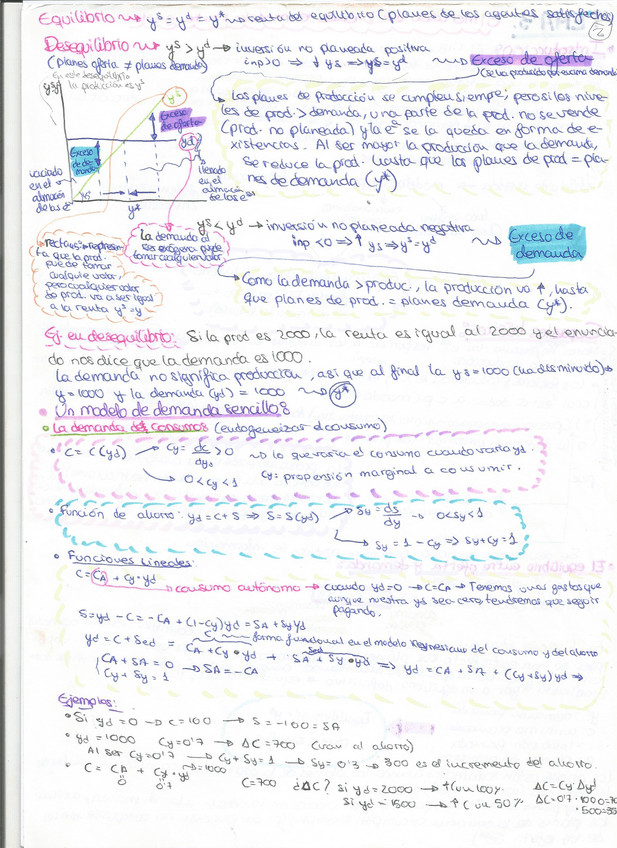 Equilibrio → yˢ = yᵈ = y* → renta de equilibrio (planes de los agentes satisfechos)
2
Desequilibrio → yˢ > yᵈ → inversión no planeada positiva
(planes oferta ≠ planes demanda)
inp>0 ⇒ ↓ys ⇒ yˢ=yᵈ → Exceso de oferta
En este desequilibrio
la producción es yˢ
Los planes de producción se cumplen siempre; pero si los nive-
les de prod. > demanda, una parte de la prod. no se vende
(prod. no planeada) y la eª se la queda en forma de e-
xistencias. Al ser mayor la producción que la demanda,
se reduce la prod. hasta que los planes de prod = pla-
nes de demanda (y*)
Exceso de oferta
Exceso de demanda
yᵈ
45°
y*
vaciado
en el
almacén
de las eᵃˢ
llenado
en el
almacén
de las eᵃˢ
ys < yᵈ → inversión no planeada negativa
inp <0 ⇒ ↑ ys ⇒ yˢ=yᵈ → Exceso de
demanda
recta 45° → represen-
ta que la prod.
puede tomar
cualquier valor,
pero cualquier valor
de prod. va a ser igual
a la renta yˢ=y
La demanda al
ser exógena puede
tomar cualquier valor
Como la demanda > produc., la producción va ↑, hasta
que planes de prod. = planes demanda (y*).
Ej. en desequilibrio: Si la prod es 2000, la renta es igual al 2000 y el enuncia-
do nos dice que la demanda es 1000.
La demanda no significa producción, así que al final la ys = 1000 (ha disminuido) →
y = 1000 y la demanda (yd) = 1000 → y*
Un modelo de demanda sencillo:
• La demanda de consumo: (endogeneizar el consumo)
• C = C(yd) → Cy = dc/dyd > 0 → lo que varía el consumo cuando varía yd.
0 < Cy < 1 Cy = propensión marginal a consumir.
• Función de ahorro: yd = C + S ⇒ S = S(yd) → Sy = ds/dy → 0<Sy<1
→ Sy = 1 - Cy ⇒ Sy + Cy = 1
• Funciones lineales:
C = CA + Cy · yd
consumo autónomo → cuando yd = 0 → C = CA → Tenemos unos gastos que
aunque nuestra yd sea cero, tendremos que seguir
pagando.
S = yd - C = -CA + (1-Cy) yd = SA + Sy yd
yd = C + Sed = CA + Cy · yd + SA + Sy · yd ⇒ yd = CA + SA + (Cy + Sy) yd ⇒
forma funcional en el modelo keynesiano del consumo y del ahorro
CA + SA = 0 → SA = -CA
Cy + Sy = 1
Ejemplos:
• Si yd = 0 → C = 100 → S = -100 = SA
• yd = 1000 Cy = 0'7 → ΔC = 700 (van al ahorro)
Al ser Cy = 0'7 → Cy + Sy = 1 → Sy = 0'3 → 300 es el incremento del ahorro.
• C = CA + Cy · yd → = 1000 C = 700 ¿ΔC? Si yd = 2000 → ↑C un 100% ΔC = Cy · Δyd
0 0'7 Si yd = 1500 → ↑C un 50% ΔC = 0'7 · 1000 = 70
· 500 = 35